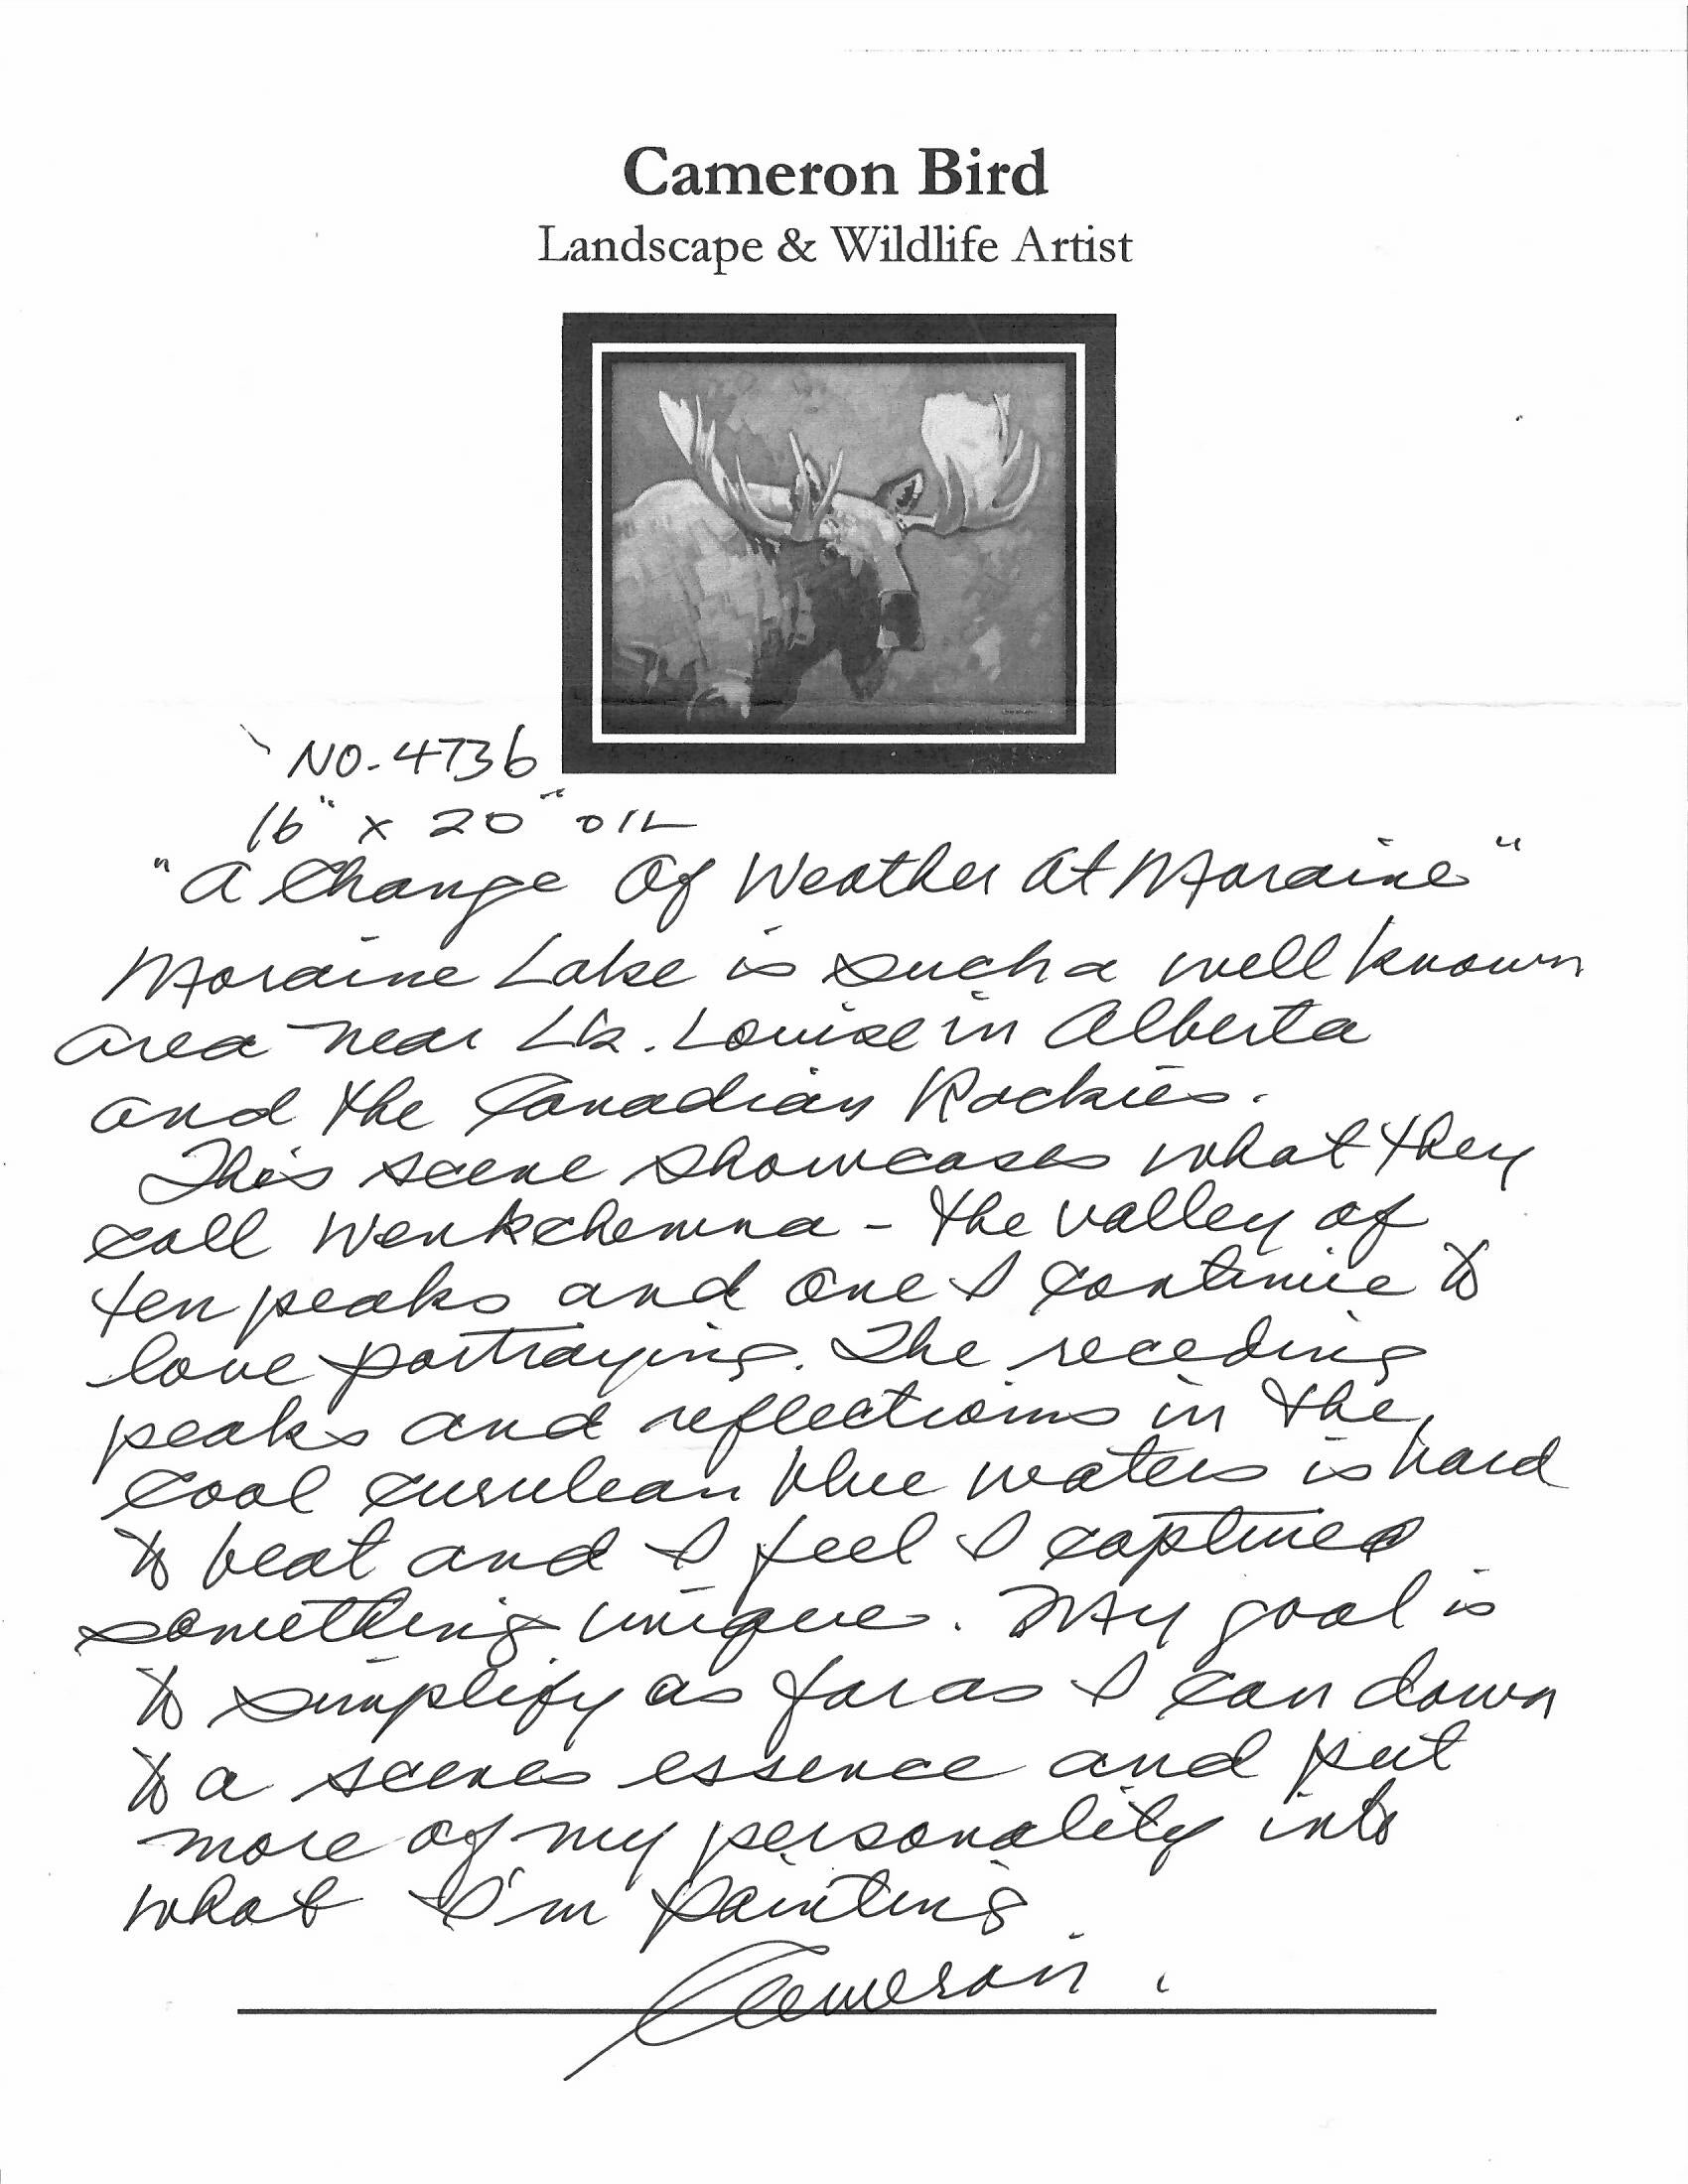 Cameron Bird
Landscape & Wildlife Artist
NO. 4736
16" x 20" OIL
"A Change Of Weather At Moraine"
Moraine Lake is such a well known
area near Lk. Louise in Alberta
and the Canadian Rockies.
This scene showcases what they
call Wenkchemna - the valley of
ten peaks and one I continue to
love portraying. The receding
peaks and reflections in the
cool curulean blue waters is hard
to beat and I feel I captured
something unique. My goal is
to simplify as far as I can down
to a scenes essence and put
more of my personality into
what I'm painting
Cameron.